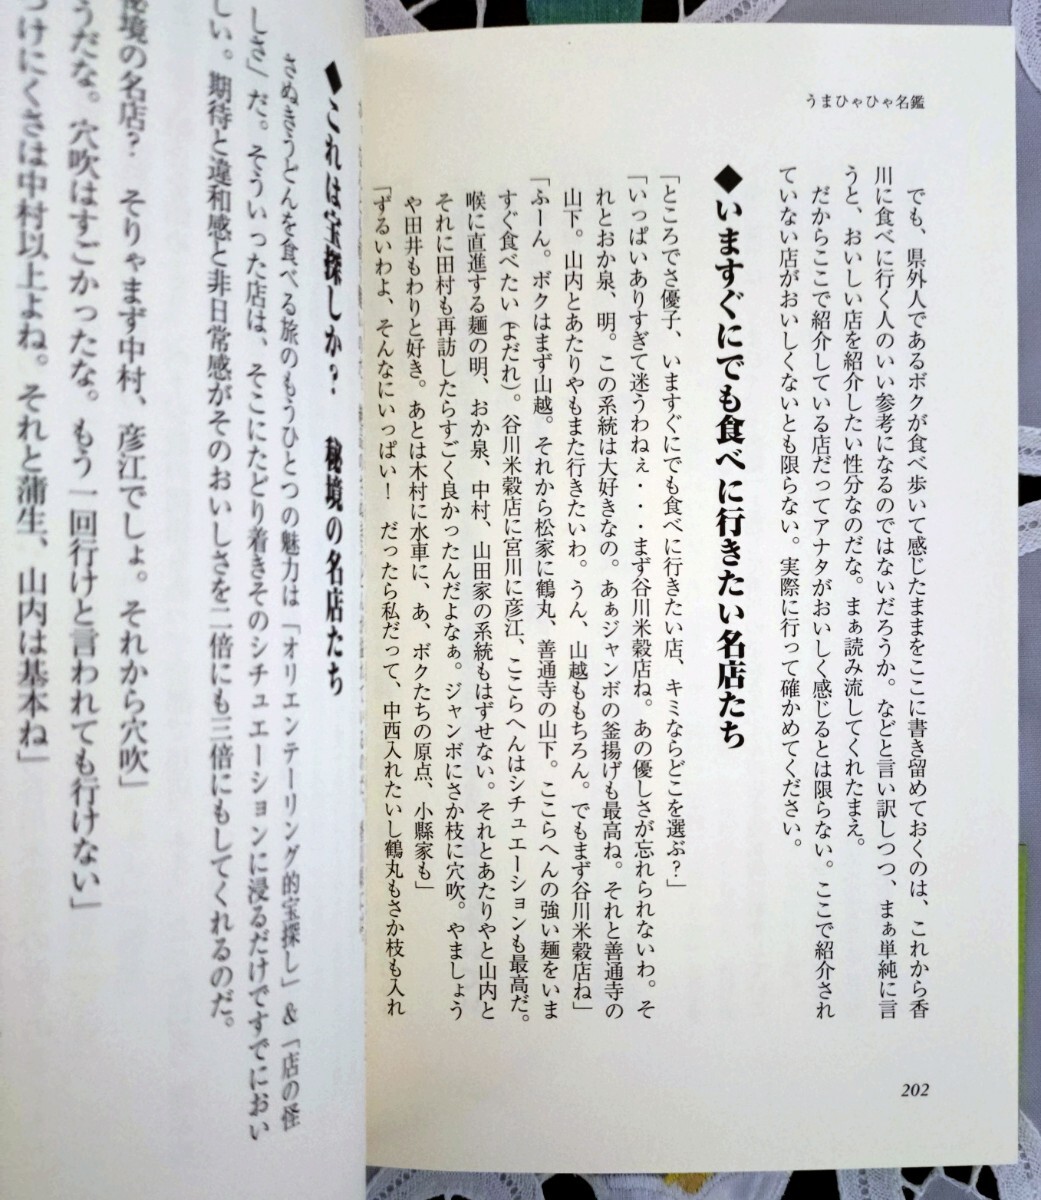 うまひゃひゃ名鑑
でも、県外人であるボクが食べ歩いて感じたままをここに書き留めておくのは、これから香
川に食べに行く人のいい参考になるのではないだろうか。などと言い訳しつつ、まぁ単純に言
うと、おいしい店を紹介したい性分なのだな。まぁ読み流してくれたまえ。
だからここで紹介している店だってアナタがおいしく感じるとは限らない。ここで紹介され
ていない店がおいしくないとも限らない。実際に行って確かめてください。
◆いますぐにでも食べに行きたい名店たち
「ところでさ優子、いますぐにでも食べに行きたい店、キミならどこを選ぶ？」
「いっぱいありすぎて迷うわねぇ・・・まず谷川米穀店ね。あの優しさが忘れられないわ。そ
れとおか泉、明。この系統は大好きなの。あぁジャンボの釜揚げも最高ね。それと善通寺の
山下。山内とあたりやもまた行きたいわ。うん、山越ももちろん。でもまず谷川米穀店ね」
「ふーん。ボクはまず山越。それから松家に鶴丸、善通寺の山下。ここらへんの強い麺をいま
すぐ食べたい（よだれ）。谷川米穀店に宮川に彦江、ここらへんはシチュエーションも最高だ。
喉に直進する麺の明、おか泉、中村、山田家の系統もはずせない。それとあたりやと山内と
それに田村も再訪したらすごく良かったんだよなぁ。ジャンボにさか枝に穴吹。やましょう
や田井もわりと好き。あとは木村に水車に、あ、ボクたちの原点、小縣家も」
「ずるいわよ、そんなにいっぱい！　だったら私だって、中西入れたいし鶴丸もさか枝も入れ
202
◆これは宝探しか？　秘境の名店たち
さぬきうどんを食べる旅のもうひとつの魅力は「オリエンテーリング的宝探し」＆「店の怪
しさ」だ。そういった店は、そこにたどり着きそのシチュエーションに浸るだけですでにおい
しい。期待と違和感と非日常感がそのおいしさを二倍にも三倍にもしてくれるのだ。
秘境の名店？　そりゃまず中村、彦江でしょ。それから穴吹」
うだな。穴吹はすごかったな。もう一回行けと言われても行けない」
つけにくさは中村以上よね。それと蒲生、山内は基本ね」